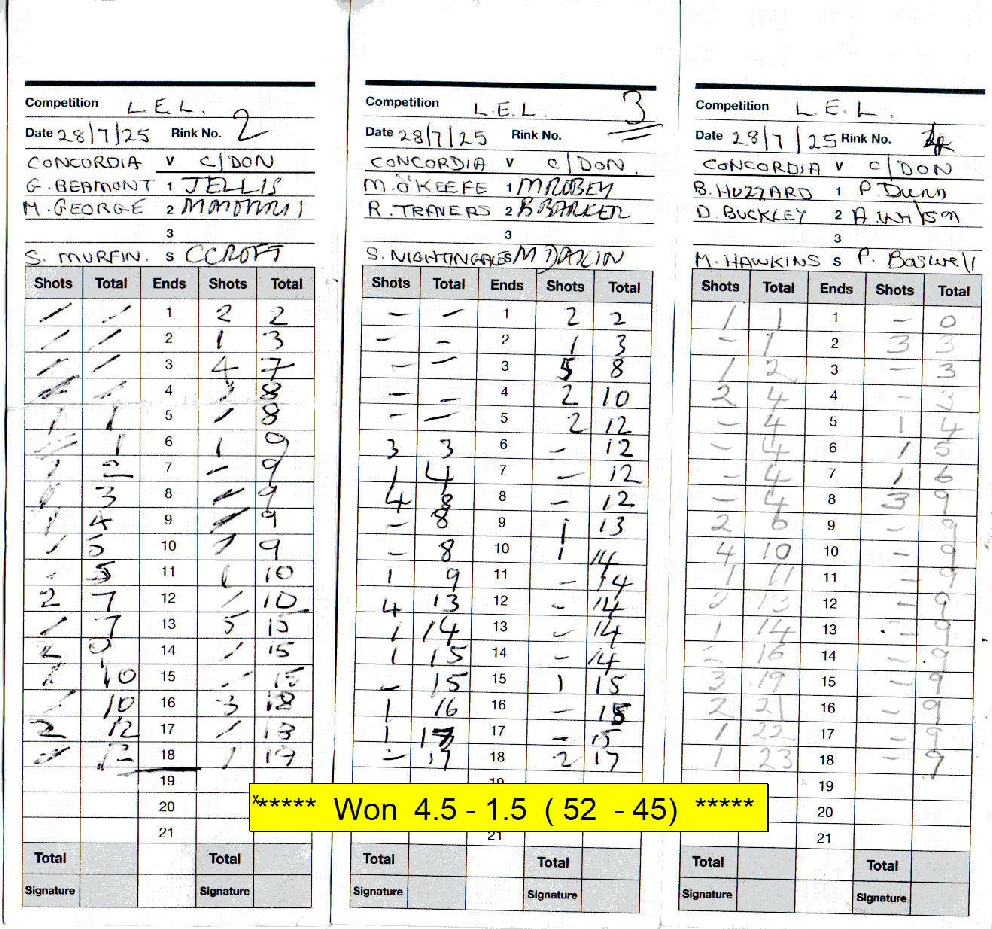 Competition L.E.L.
Date 28/7/25 Rink No. 2
CONCORDIA V C/DON
G. BEAMONT 1 JELLIS
M. GEORGE 2
3
S. MURFIN. S C CROFT
Shots Total Ends Shots Total
/ / 1 2 2
/ / 2 1 3
/ / 3 4 7
4 8
1 1 5 / 8
1 6 1 9
1 2 7 - 9
3 8 / 9
1 4 9 / 9
/ 5 10 9
- 5 11 1 10
2 7 12 / 10
/ 7 13 5 15
2 9 14 / 15
1 10 15 / 15
/ 10 16 3 18
2 12 17 / 18
/ 12 18 1 19
19
20
21
Total Total
Signature Signature
Competition L.E.L. 3
Date 28/7/25 Rink No.
CONCORDIA V C/DON
M. O'KEEFE 1 M ROBEY
R. TRAVERS 2 B BARKER
3
S. NIGHTINGALE S M DAKIN
Shots Total Ends Shots Total
- - 1 2 2
- - 2 1 3
- - 3 5 8
- - 4 2 10
- - 5 2 12
3 3 6 - 12
1 4 7 - 12
4 8 8 - 12
- 8 9 1 13
- 8 10 1 14
1 9 11 - 14
4 13 12 - 14
1 14 13 - 14
1 15 14 - 14
- 15 15 1 15
1 16 16 - 15
1 17 17 - 15
- 17 18 2 17
19
21
Total Total
Signature Signature
Competition L.E.L.
Date 28/7/25 Rink No. 4
CONCORDIA V C/DON
B. HUZZARD 1 P. Dunn
D. BUCKLEY 2
3
M. HAWKINS S P. Boswell
Shots Total Ends Shots Total
1 1 1 - 0
- 1 2 3 3
1 2 3 - 3
2 4 4 - 3
- 4 5 1 4
- 4 6 1 5
- 4 7 1 6
- 4 8 3 9
2 6 9 - 9
4 10 10 - 9
1 11 11 - 9
2 13 12 - 9
1 14 13 - 9
2 16 14 - 9
3 19 15 - 9
2 21 16 - 9
1 22 17 - 9
1 23 18 - 9
19
20
21
Total Total
Signature Signature
x***** Won 4.5 - 1.5 ( 52 - 45) *****